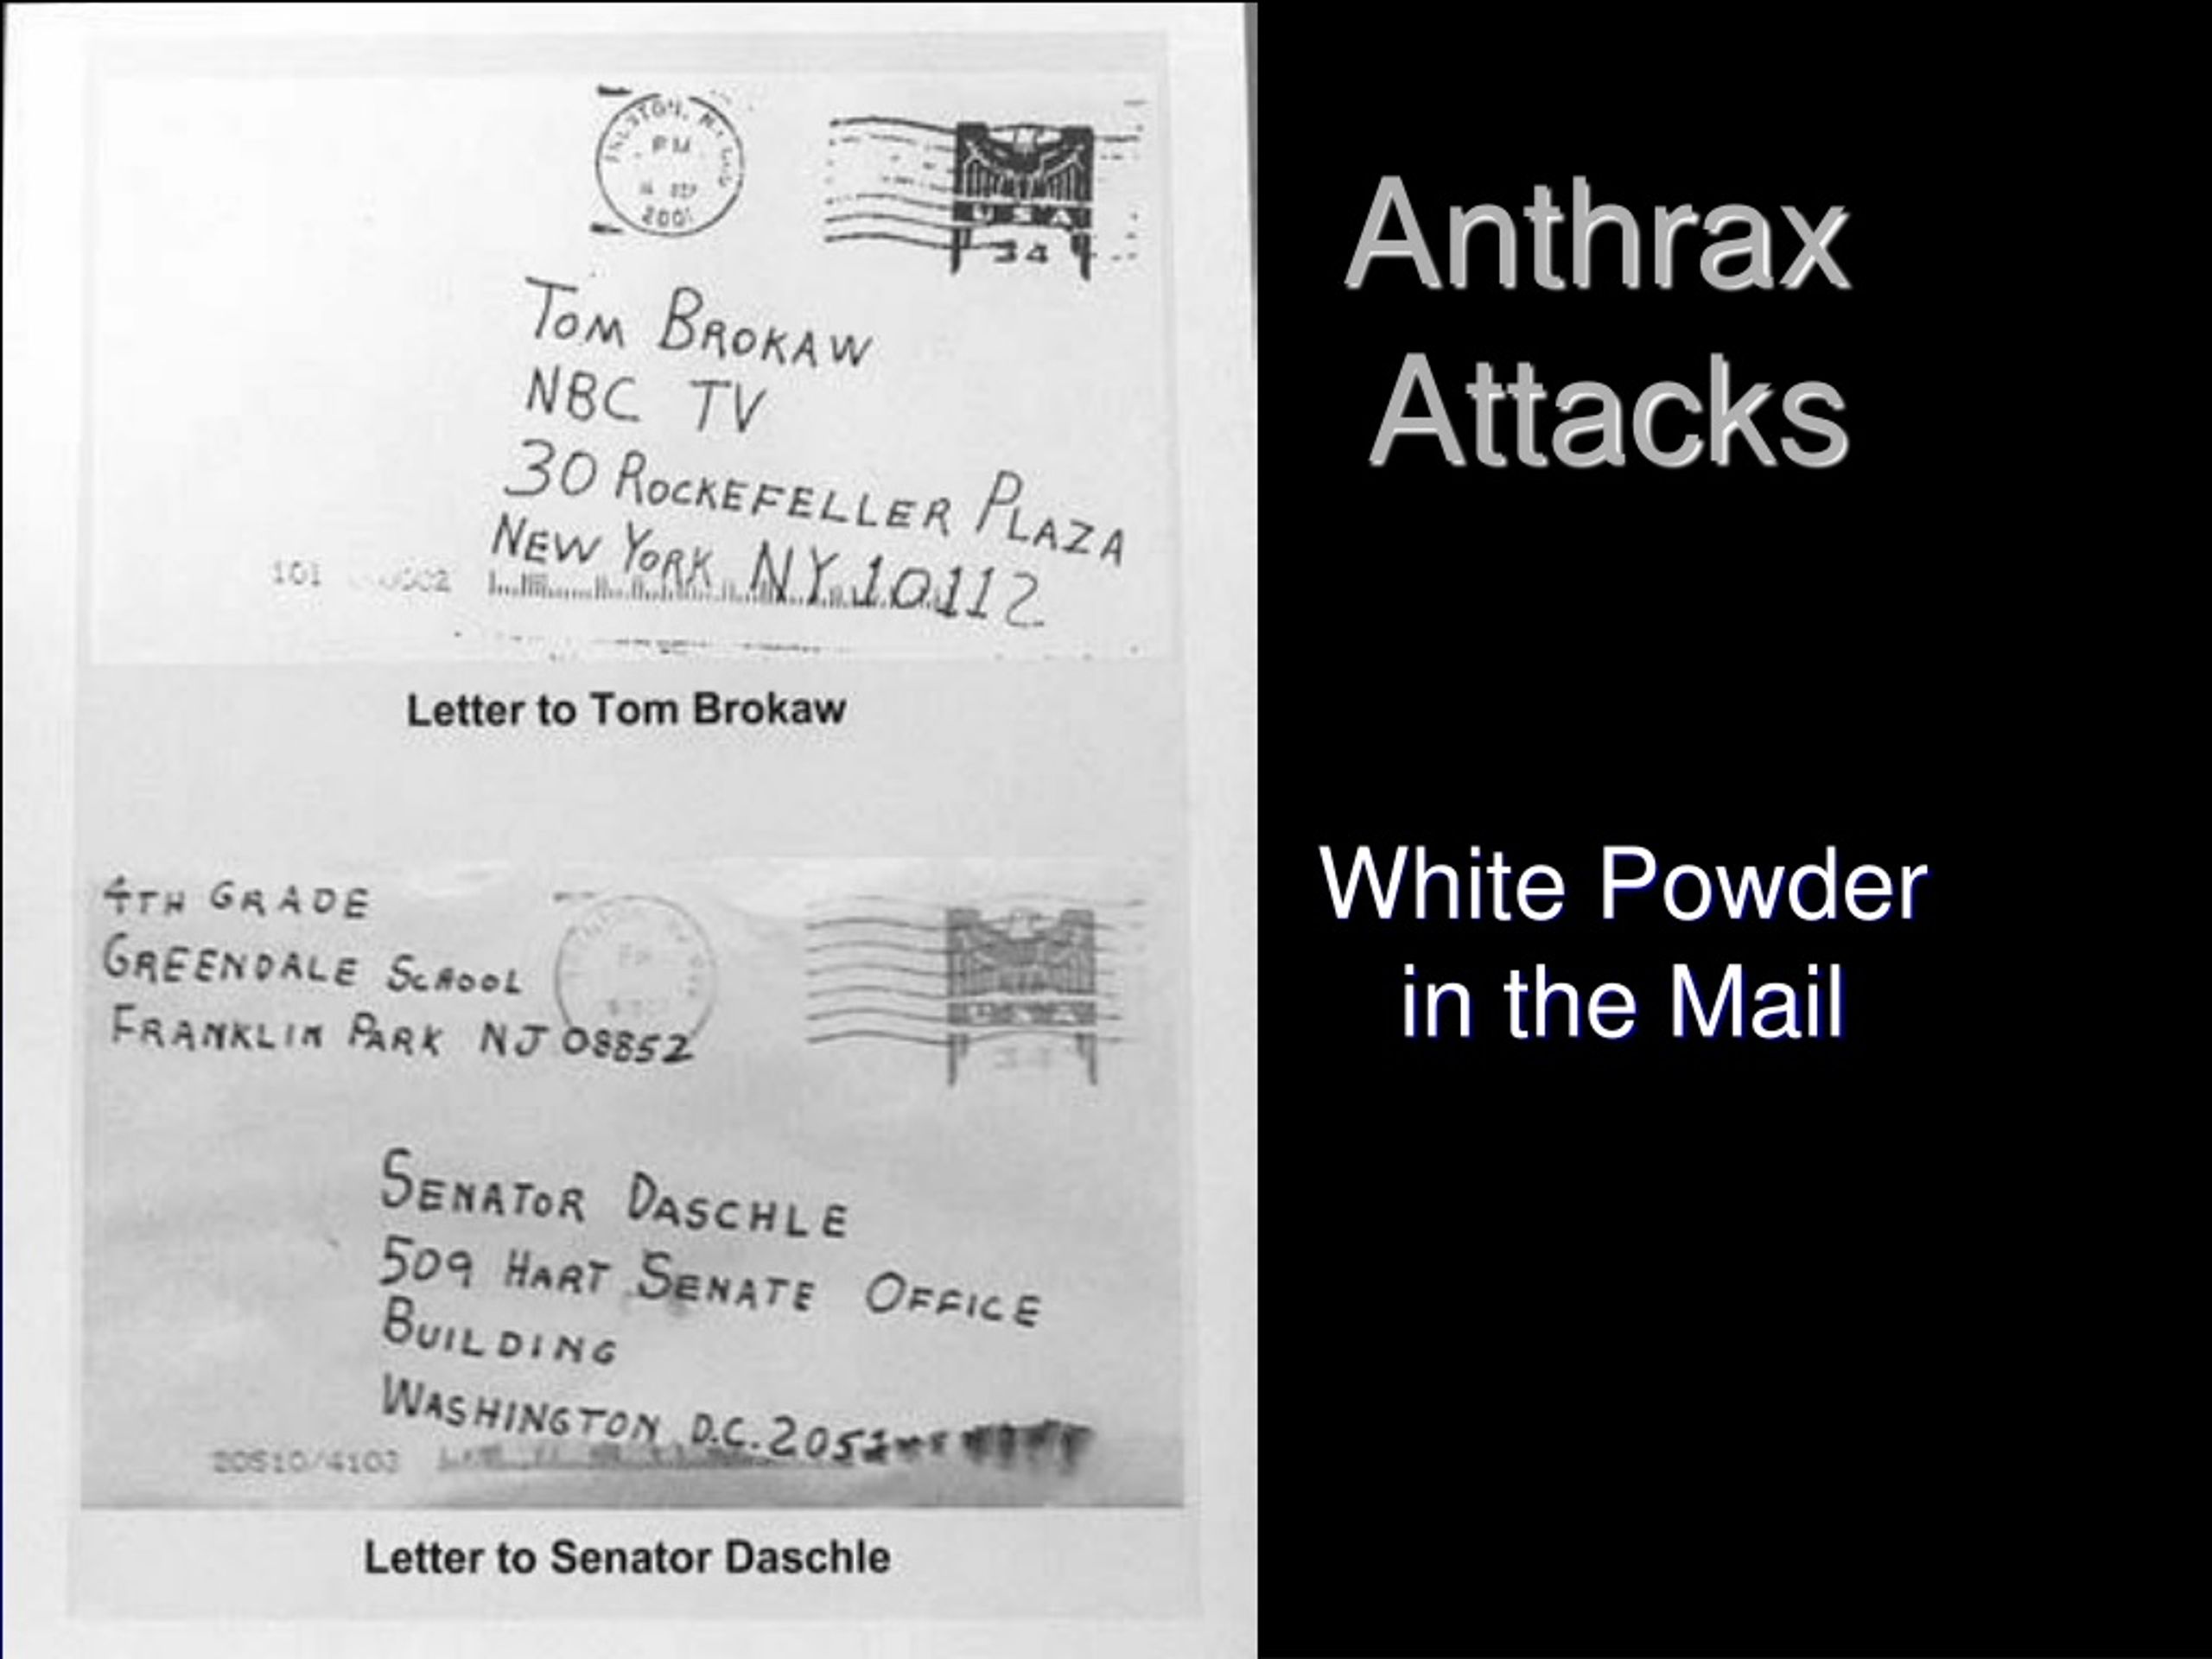 PM
2001
USA
34
TOM BROKAW
NBC TV
30 ROCKEFELLER PLAZA
NEW YORK NY 10112
101
Letter to Tom Brokaw
4TH GRADE
GREENDALE SCHOOL
FRANKLIN PARK NJ 08852
SENATOR DASCHLE
509 HART SENATE OFFICE
BUILDING
WASHINGTON D.C. 205
20510/4103
Letter to Senator Daschle
Anthrax
Attacks
White Powder
in the Mail